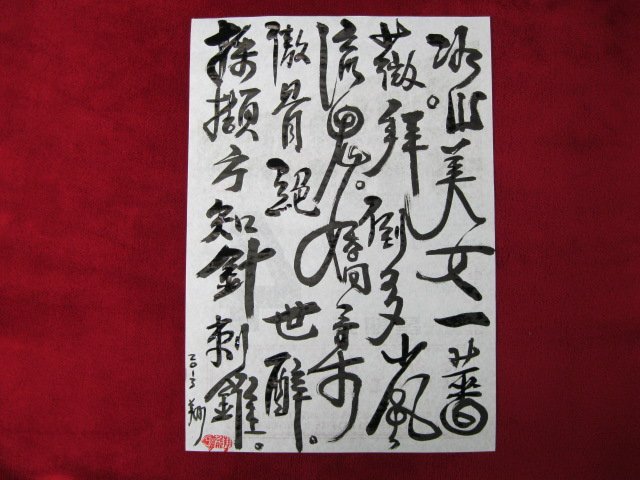 冰山美女一薔
薇。拜倒多少風
流鬼。嬌
傲骨絕世醉。
採擷方知針刺錐。
2013 翔